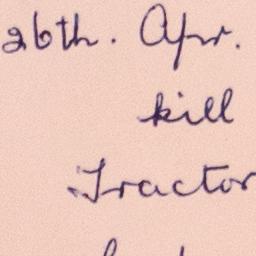 26th. Apr.
kill
Tractor